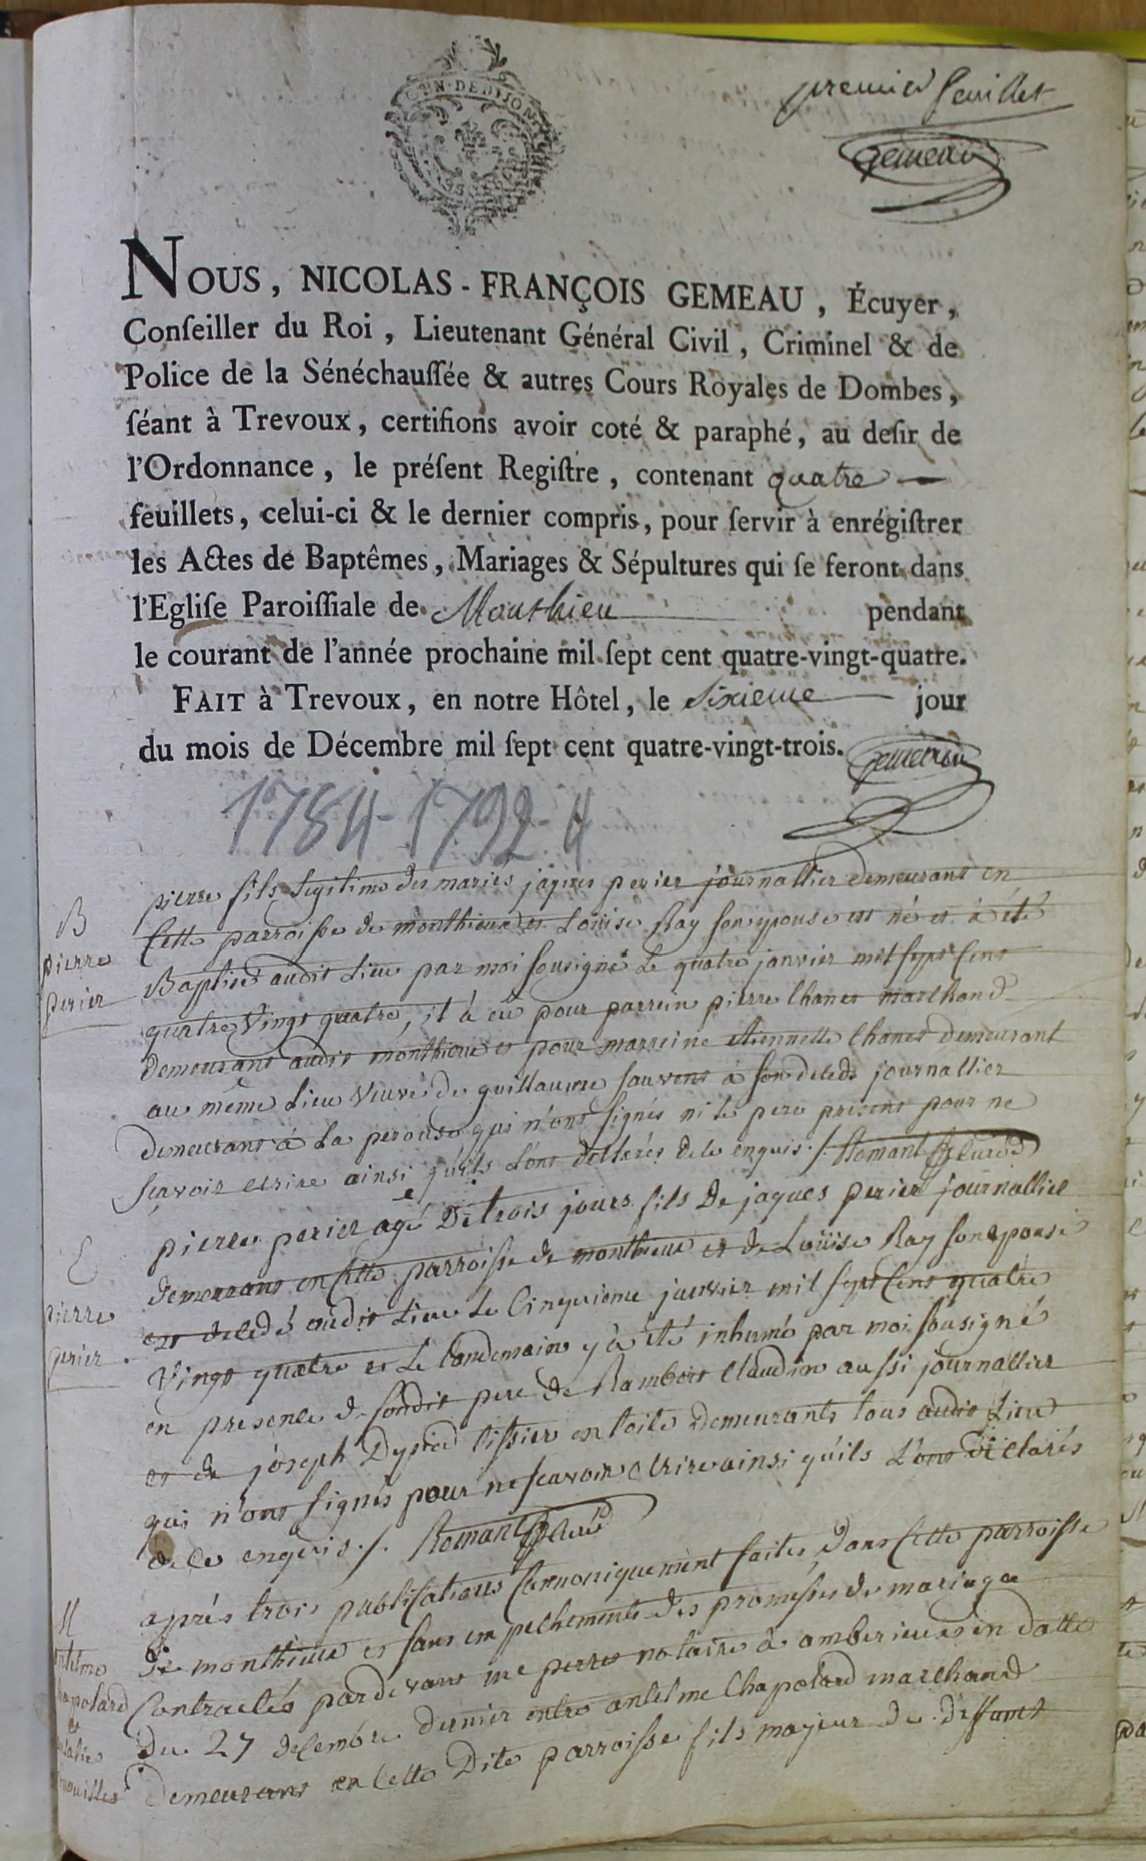 GEN. DE DIJON
premier feuillet
Gemeau
NOUS, NICOLAS-FRANÇOIS GEMEAU, Écuyer,
Conſeiller du Roi, Lieutenant Général Civil, Criminel & de
Police de la Sénéchauſſée & autres Cours Royales de Dombes,
ſéant à Trevoux, certifions avoir coté & paraphé, au deſir de
l'Ordonnance, le préſent Regiſtre, contenant quatre
feuillets, celui-ci & le dernier compris, pour ſervir à enrégiſtrer
les Actes de Baptêmes, Mariages & Sépultures qui ſe feront dans
l'Egliſe Paroiſſiale de Monthieu pendant
le courant de l'année prochaine mil ſept cent quatre-vingt-quatre.
FAIT à Trevoux, en notre Hôtel, le Sixieme jour
du mois de Décembre mil ſept cent quatre-vingt-trois. Gemeau
1784-1792-4
B
pierre
perier
pierre fils legitime des maries jaques perier journallier demeurant en
cette parroisse de monthieux et Louise Ray son epouse est né et à été
Baptisé audit Lieu par moi sousigné Le quatre janvier mil sept cent
quatre vingt quatre, il à eu pour parrein pierre Chanet marchand
demeurant audit monthieux et pour marreine etiennette Chanet demeurant
au même Lieu veuve de guillaume sauvent à son decede journallier
demeurant à La perouse qui n'ont signés ni le pere present pour ne
sçavoir ecrire ainsi qu'ils L'ont declarés de ce enquis ./. Romant curé
E
pierre
perier
pierre perier agé de trois jours fils De jaques perier journallier
demeurant en cette parroisse de monthieux et de Louise Ray son epouse
est decedé audit Lieu Le cinquieme janvier mil sept cent quatre
vingt quatre et Le Landemain y à été inhumé par moi sousigné
en presence de sondit pere de Rambert Claudin aussi journallier
et de joseph tissier en toile Demeurants tous audit Lieu
qui n'ont signés pour ne scavoir ecrire ainsi qu'ils L'ont déclarés
de ce enquis ./. Romant curé
M
antelme
Chapolard
et
après trois publications Cannoniquement faites dans cette parroisse
de monthieux et sans empechements des promesses de mariage
Contractés pardevant me perret notaire à amberieux en datte
du 27 decembre dernier entre antelme Chapolard marchand
Demeurant en cette Dite parroisse fils majeur de deffunt